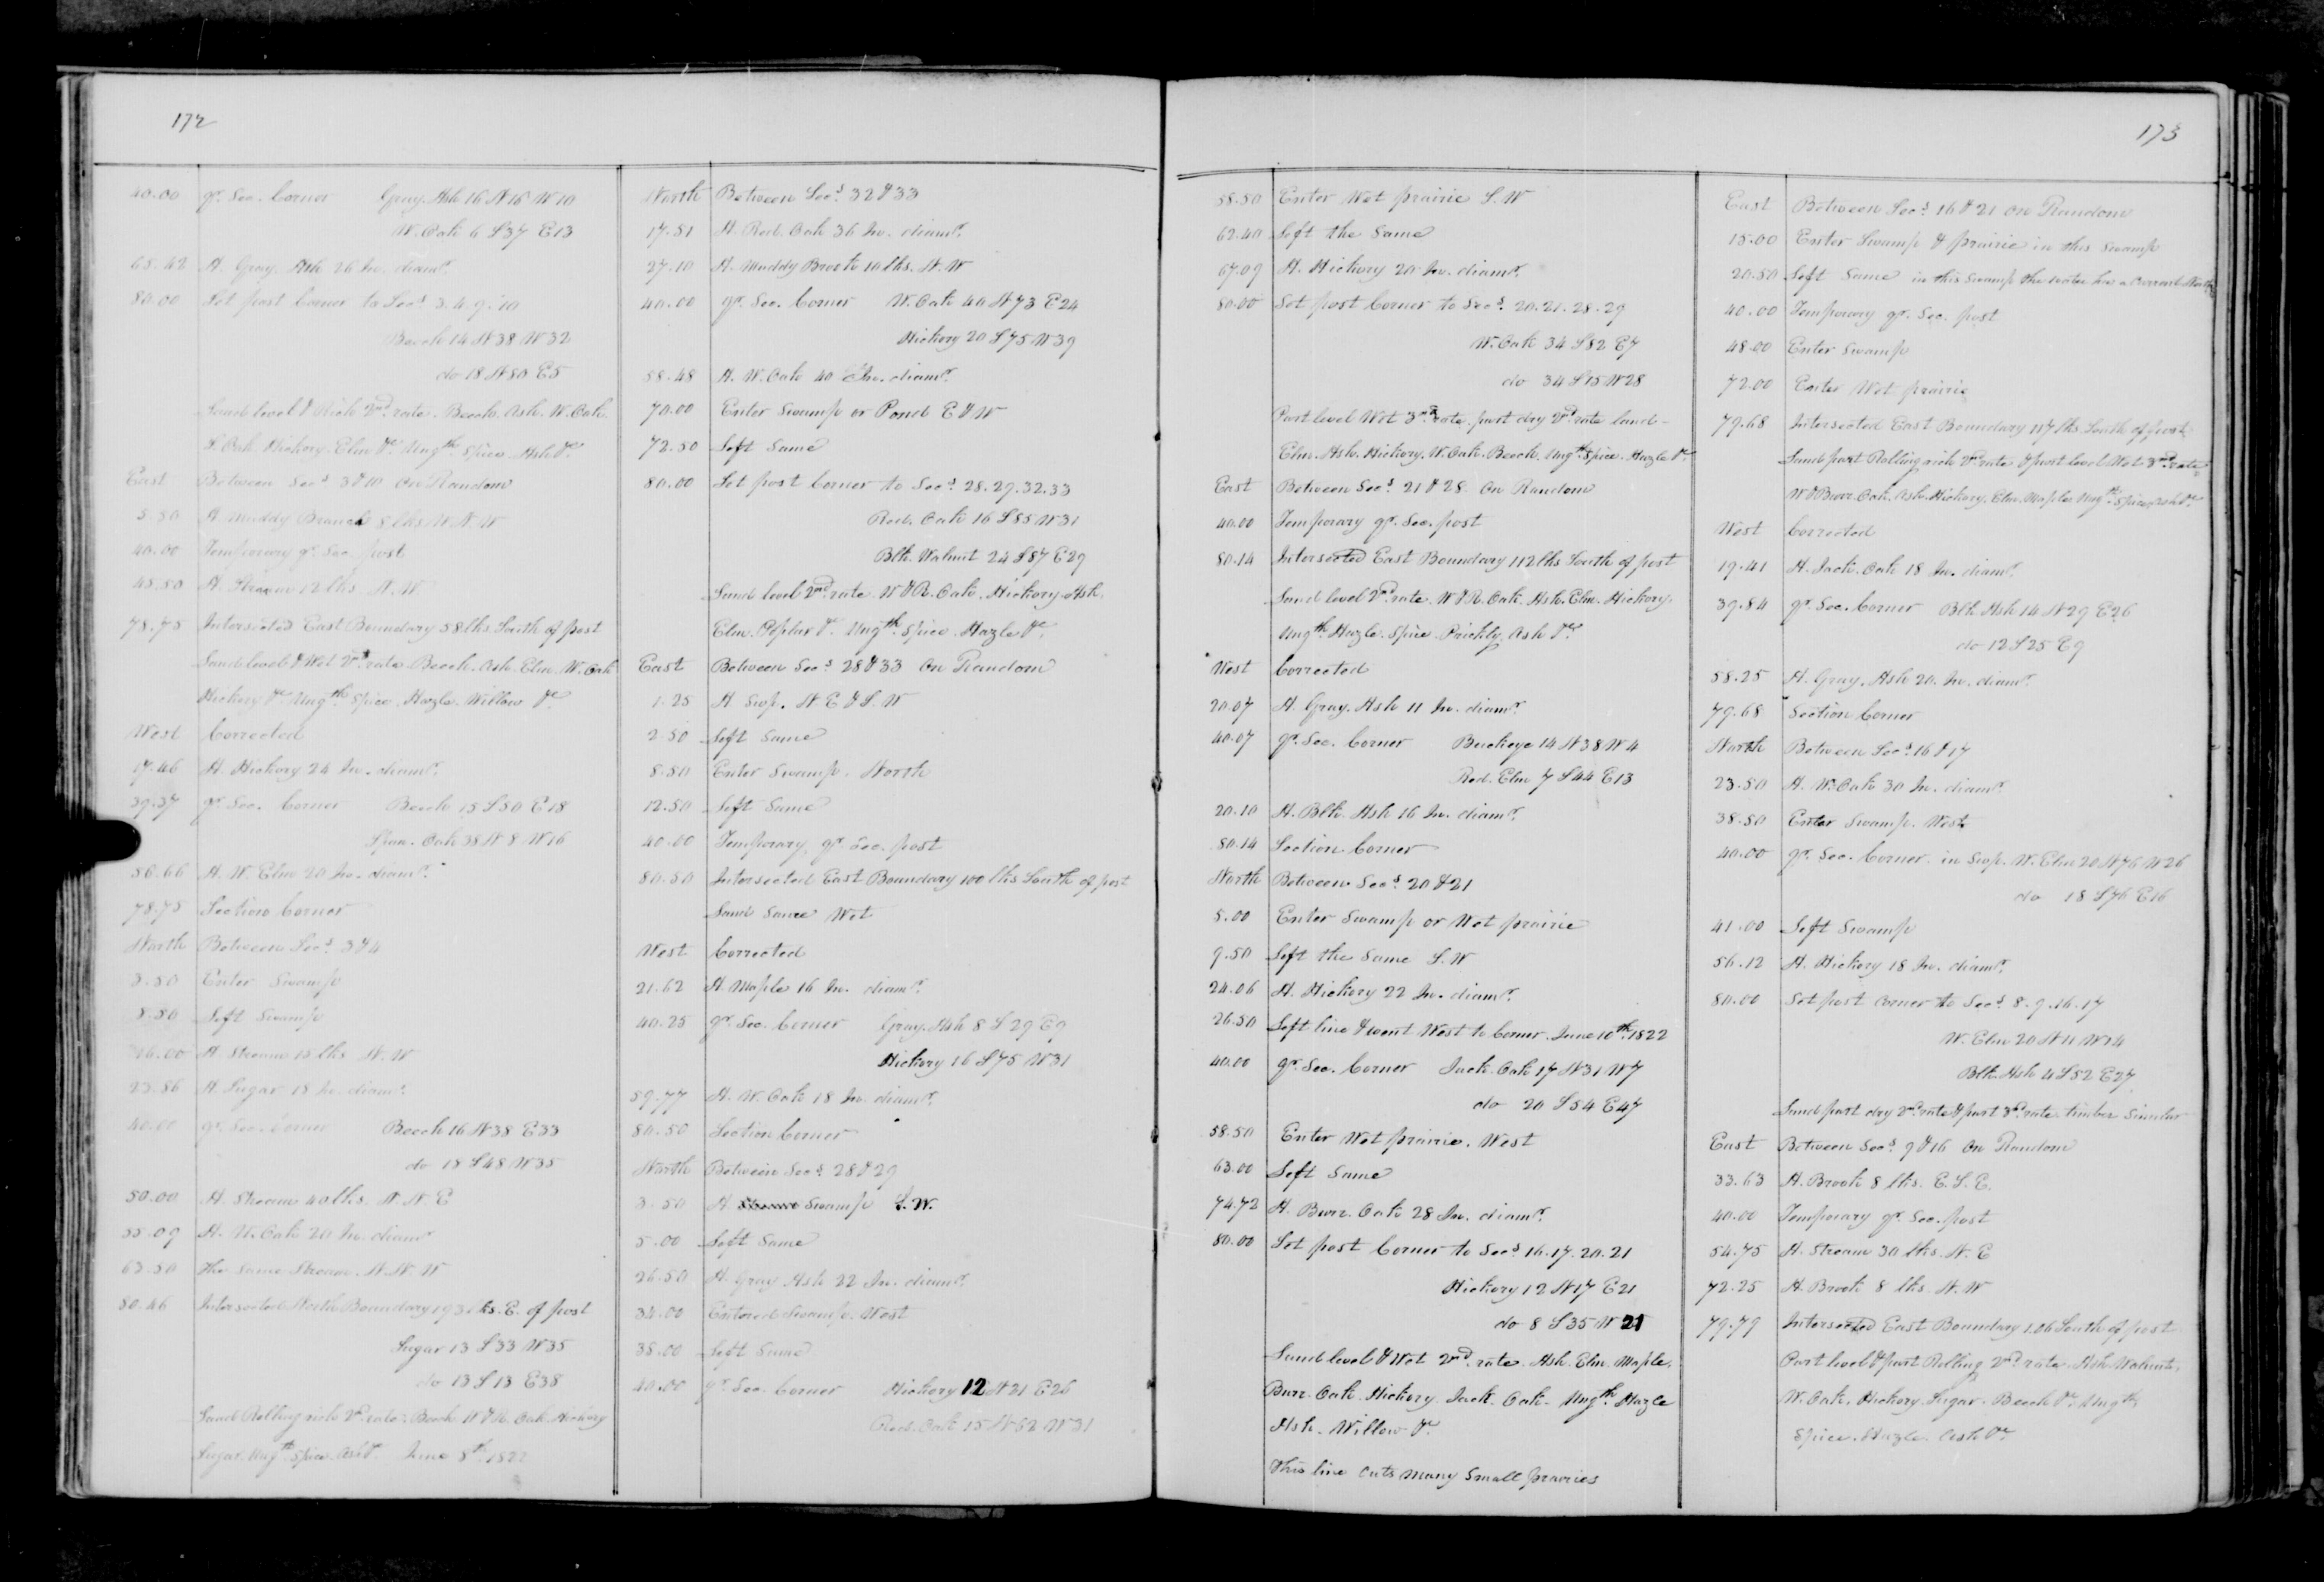 172
40.00 qr. Sec. Corner Gray. Ash 16 N16 W10
W. Oak 6 S37 E13
65.42 A. Gray. Ash 26 In. diamr.
80.00 Set post Corner to Secs 3.4.9.10
Beech 14 N38 W32
do 18 N80 E5
Land level & Rich 2nd. rate. Beech. Ash. W. Oak.
Oak. Hickory. Elm &c. Ungth. Spice. Ash &c.
East Between Secs 3 & 10 On Random
5.50 A Muddy Branch 8 lks N.N.W
40.00 Temporary qr. Sec. post
45.50 A. Stream 12 lks. N.W
78.75 Intersected East Boundary 58 lks. South of post
Land level & Wet 2d. rate. Beech. Ash. Elm. W. Oak
Hickory &c Ungth. Spice. Hazle. Willow &c.
West Corrected
17.46 A. Hickory 24 In. diamr.
39.37 qr. Sec. Corner Beech 15 S50 E18
Span. Oak 38 N8 W16
56.66 A. W. Elm 20 In. diamr.
78.75 Section Corner
North Between Secs. 3 & 4
3.50 Enter Swamp
Left Swamp
16.00 A. Stream 15 lks N.W
23.86 A. Sugar 18 In. diamr.
40.00 qr. Sec. Corner Beech 16 N38 E33
do 18 S48 W35
50.00 A. Stream 40 lks. N.N.E
55.09 A. W. Oak 20 In. diamr
63.50 The Same Stream. N.N.W
80.46 Intersected North Boundary 193 lks. E. of post
Sugar 13 S33 W35
do 13 S13 E38
Land Rolling rich 2d. rate. Beech. W & R. Oak. Hickory
Sugar. Ungth Spice. Ash &c. June 8th. 1822
North Between Secs. 32 & 33
17.51 A. Red. Oak 36 In. diamr.
27.10 A. Muddy Brook 10 lks. N.W
40.00 qr. Sec. Corner W. Oak 40 N73 E24
Hickory 20 S75 W39
58.48 A. W. Oak 40 In. diamr.
70.00 Enter Swamp or Pond E & W
72.50 Left Same
80.00 Set post Corner to Secs. 28.29.32.33
Red. Oak 16 S85 W31
Blk. Walnut 24 S87 E29
Land level 2nd. rate. W & R. Oak. Hickory. Ash.
Elm. Poplar &c. Ungth. Spice. Hazle &c.
East Between Secs 28 & 33 On Random
1.25 A Swp. N.E & S.W
2.50 Left Same
8.50 Enter Swamp. North
12.50 Left Same
40.00 Temporary qr. Sec. post
80.50 Intersected East Boundary 100 lks South of post
Land Same Wet
West Corrected
21.62 A. Maple 16 In. diamr.
40.25 qr. Sec. Corner Gray. Ash 8 S29 E9
Hickory 16 S75 W31
59.77 A. W. Oak 18 In. diamr.
80.50 Section Corner
North Between Secs. 28 & 29
3.50 A Swamp S.W.
5.00 Left Same
26.50 A. Gray Ash 22 In. diamr.
34.00 Entered Swamp. West
38.00 Left Same
40.00 qr. Sec. Corner Hickory 12 N21 E26
Red. Oak 15 N62 W31
173
58.50 Enter Wet prairie S.W
62.40 Left the Same
67.09 A. Hickory 20 In. diamr.
80.00 Set post Corner to Secs. 20.21.28.29
W. Oak 34 S82 E7
do 34 S15 W28
Part level Wet 3rd rate. part dry 2nd rate land
Elm. Ash. Hickory. W. Oak. Beech. Ungth. Spice. Hazle &c
East Between Secs. 21 & 28. On Random
40.00 Temporary qr. Sec. post
80.14 Intersected East Boundary 112 lks South of post
Land level 2nd. rate. W & R. Oak. Ash. Elm. Hickory.
Ungth. Hazle. Spice. Prickly. Ash &c
West Corrected
20.07 A. Gray. Ash 11 In. diamr.
40.07 qr. Sec. Corner Buckeye 14 N38 W4
Red. Elm 7 S44 E13
20.10 A. Blk. Ash 16 In. diamr.
80.14 Section Corner
North Between Secs. 20 & 21
5.00 Enter Swamp or Wet prairie
9.50 Left the Same S.W
24.06 A. Hickory 22 In. diamr.
26.50 Left line & went West to Corner. June 10th. 1822
40.00 qr. Sec. Corner Jack. Oak 17 N31 W7
do 20 S54 E47
58.50 Enter Wet prairie. West
63.00 Left Same
74.72 A. Burr. Oak 28 In. diamr.
80.00 Set post Corner to Secs. 16.17.20.21
Hickory 12 N17 E21
do 8 S35 W 21
Land level & Wet 2nd. rate. Ash. Elm. Maple.
Burr. Oak. Hickory. Jack. Oak. Ungth. Hazle
Ash. Willow &c
This line Cuts many Small prairies
East Between Secs. 16 & 21 On Random
15.00 Enter Swamp & prairie in this Swamp
20.50 Left Same in this Swamp the water has a Current
40.00 Temporary qr. Sec. post
48.00 Enter Swamp
72.00 Enter Wet prairie
79.68 Intersected East Boundary 117 lks. South of post.
Land part Rolling rich 2d rate & part level Wet 3rd. rate
W & Burr. Oak. Ash. Hickory. Elm. Maple Ungth. Spice, Ash &c.
West Corrected
19.41 A. Jack. Oak 18 In. diamr.
39.84 qr. Sec. Corner Blk. Ash 14 N29 E26
do 12 S25 E9
58.25 A. Gray. Ash 20. In. diamr.
79.68 Section Corner
North Between Secs. 16 & 17
23.50 A. W. Oak 30 In. diamr
38.50 Enter Swamp. West
40.00 qr. Sec. Corner. in Swp. W. Elm 20 N76 W26
do 18 S76 E16
41.00 Left Swamp
56.12 A. Hickory 18 In. diamr.
80.00 Set post Corner to Secs. 8.9.16.17
W. Elm 20 N11 W14
Blk. Ash 4 S52 E27
Land part dry 2nd. rate & part 3d. rate timber Similar
East Between Secs 9 & 16 On Random
33.63 A. Brook 8 lks. E.S.E.
40.00 Temporary qr. Sec. post
54.75 A. Stream 30 lks. N.E
72.25 A. Brook 8 lks. N.W
79.79 Intersected East Boundary 1.06 South of post
Part level & part Rolling 2nd. rate. Ash. Walnut.
W. Oak. Hickory. Sugar. Beech &c. Ungth.
Spice. Hazle. Ash &c.